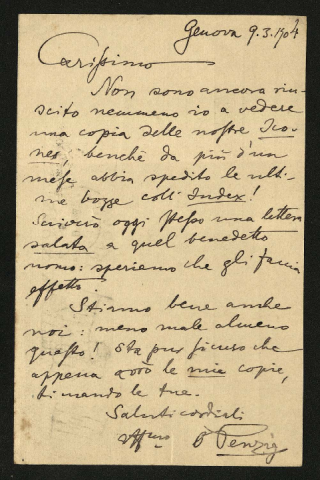 Genova 9.3.1904
Carissimo
Non sono ancora riu-
scito nemmeno io a vedere
una copia delle nostre Ico-
nes, benchè da più d'un
mese abbia spedito le ulti-
me bozze coll'Index!
Scriverò oggi stesso una lettera
salata a quel benedetto
uomo: speriamo che gli faccia
effetto.
Stiamo bene anche
noi: meno male almeno
questo! Sta pur sicuro che
appena avrò le mie copie,
ti mando le tue.
Saluti cordiali
affmo O Penzig